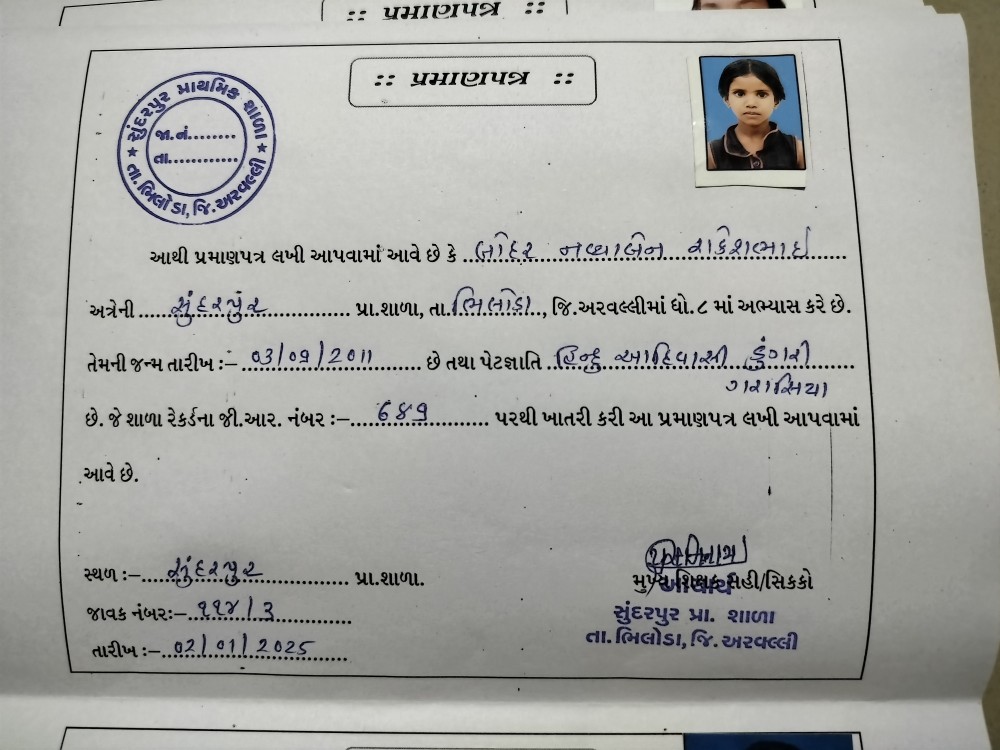 :: પ્રમાણપત્ર ::
:: પ્રમાણપત્ર ::
સુંદરપુર પ્રાથમિક શાળા
જા.નં.........
તા............
★ તા.ભિલોડા, જિ.અરવલ્લી ★
આથી પ્રમાણપત્ર લખી આપવામાં આવે છે કે નવ્યાબેન રાકેશભાઈ
અત્રેની સુંદરપુર પ્રા.શાળા, તા.ભિલોડા, જિ.અરવલ્લીમાં ધો.૮ માં અભ્યાસ કરે છે.
તેમની જન્મ તારીખ :- 03/09/2011 છે તથા પેટાજ્ઞાતિ હિન્દુ આદિવાસી ડુંગરી
ગરાસિયા
છે. જે શાળા રેકર્ડના જી.આર. નંબર :- પરથી ખાતરી કરી આ પ્રમાણપત્ર લખી આપવામાં
આવે છે.
સ્થળ :- સુંદરપુર પ્રા.શાળા.
જાવક નંબર:- ૧૧૪/૩
તારીખ :- 02/01/2025
મુખ્ય શિક્ષક સહી/સિકકો
આચાર્ય
સુંદરપુર પ્રા. શાળા
તા.ભિલોડા, જિ.અરવલ્લી